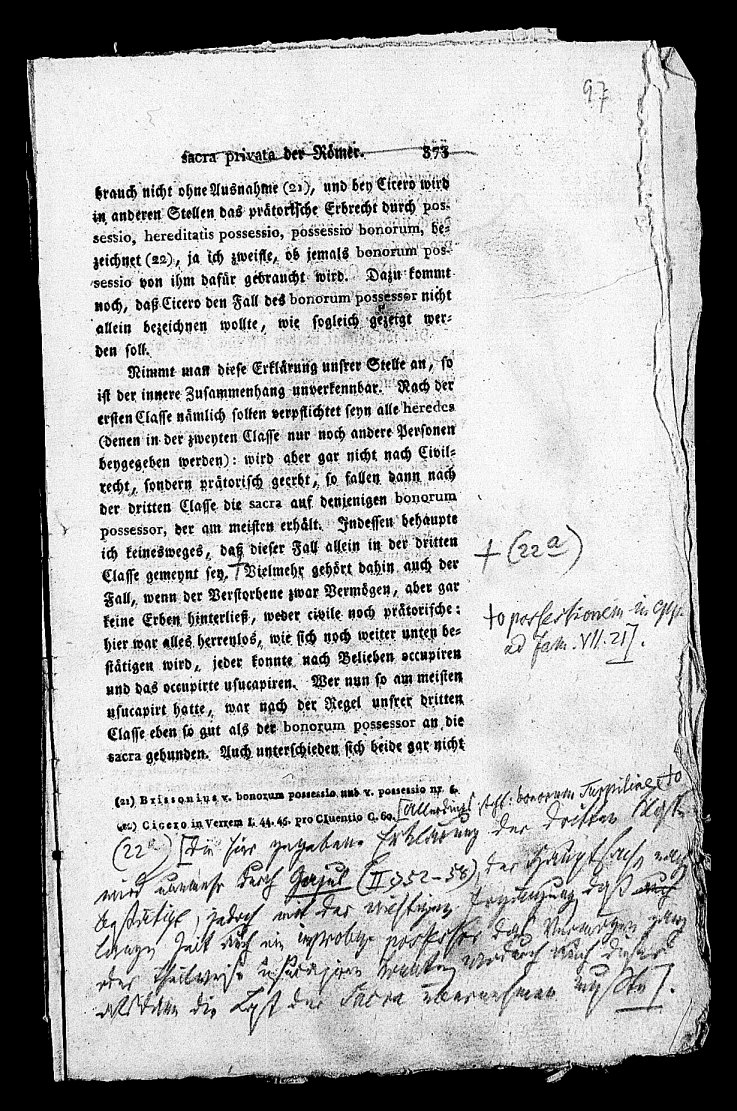 97
sacra privata der Römer. 373
brauch nicht ohne Ausnahme (21), und bey Cicero wird
in anderen Stellen das prätorische Erbrecht durch pos-
sessio, hereditatis possessio, possessio bonorum, be-
zeichnet (22), ja ich zweifle, ob jemals bonorum pos-
sessio von ihm dafür gebraucht wird. Dazu kommt
noch, daß Cicero den Fall des bonorum possessor nicht
allein bezeichnen wollte, wie sogleich gezeigt wer-
den soll.
Nimmt man diese Erklärung unsrer Stelle an, so
ist der innere Zusammenhang unverkennbar. Nach der
ersten Classe nämlich sollen verpflichtet seyn alle heredes
(denen in der zweyten Classe nur noch andere Personen
beygegeben werden): wird aber gar nicht nach Civil-
recht, sondern prätorisch geerbt, so fallen dann nach
der dritten Classe die sacra auf denjenigen bonorum
possessor, der am meisten erhält. Indessen behaupte
ich keinesweges, daß dieser Fall allein in der dritten
Classe gemeynt sey. † Vielmehr gehört dahin auch der
Fall, wenn der Verstorbene zwar Vermögen, aber gar
keine Erben hinterließ, weder civile noch prätorische:
hier war alles herrenlos, wie sich noch weiter unten be-
stätigen wird, jeder konnte nach Belieben occupiren
und das occupirte usucapiren. Wer nun so am meisten
usucapirt hatte, war nach der Regel unsrer dritten
Classe eben so gut als der bonorum possessor an die
sacra gebunden. Auch unterschieden sich beide gar nicht
† (22a)
possessionem in
ad fam. VII. 21].
(21) Brissonius v. bonorum possessio und v. possessio nr. 6.
(22) Cicero in Verrem I. 44. 45. pro Cluentio C. 60. [Allerdings bonorum Turpiliae
(22a) [Die hier gegebene Erklärung der dritten Classe
wird nunmehr durch Gajus (II §52-58) der Hauptsache nach
bestätigt, jedoch mit der wichtigen Ergänzung daß
lange Zeit auch ein improbus possessor das Vermögen ganz
oder theilweise usucapiren konnte, wodurch auch dieser
alsdann die Last der Sacra übernehmen mußte].